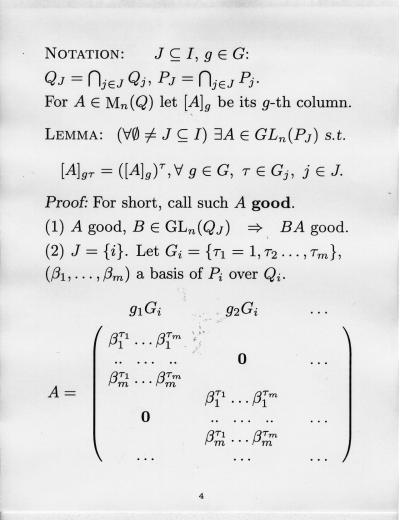 NOTATION: J ⊆ I, g ∈ G:
Q_J = ⋂_{j∈J} Q_j, P_J = ⋂_{j∈J} P_j.
For A ∈ M_n(Q) let [A]_g be its g-th column.
LEMMA: (∀∅ ≠ J ⊆ I) ∃A ∈ GL_n(P_J) s.t.
[A]_{gτ} = ([A]_g)^τ, ∀ g ∈ G, τ ∈ G_j, j ∈ J.
Proof: For short, call such A good.
(1) A good, B ∈ GL_n(Q_J) ⇒ BA good.
(2) J = {i}. Let G_i = {τ_1 = 1, τ_2 ..., τ_m},
(β_1, ..., β_m) a basis of P_i over Q_i.
g_1G_i g_2G_i ...
β_1^{τ_1} ... β_1^{τ_m}
.. ... .. 0 ...
β_m^{τ_1} ... β_m^{τ_m}
A = β_1^{τ_1} ... β_1^{τ_m}
0 .. ... .. ...
β_m^{τ_1} ... β_m^{τ_m}
... ... ...
4